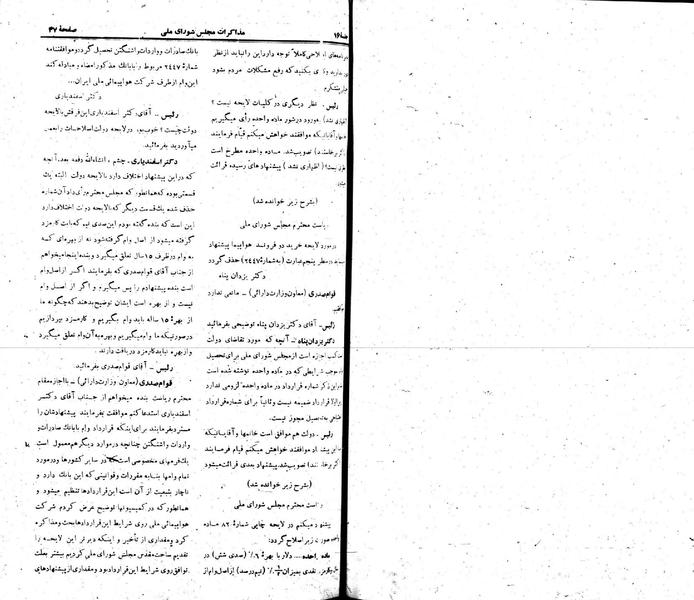 جلسه ۱۶
مذاکرات مجلس شورای ملی
صفحهٔ ۴۷
توجه دارد این را نباید از نظر
بکنید که رفع مشکلات مردم بشود
رئیس ـ نظر دیگری در کلیات لایحه نیست ؟
ورود در شور ماده واحده رأی میگیریم
موافقند خواهش میکنم قیام فرمایند
تصویب شد. ماده واحده مطرح است
( اظهاری نشد ) پیشنهادهای رسیده قرائت
(بشرح زیر خوانده شد)
ریاست محترم مجلس شورای ملی
در مورد لایحه خرید دو فروند هواپیما پیشنهاد
عبارت (به شماره ۲۴۴۷) حذف گردد
دکتر یزدان پناه
قوام صدری (معاون وزارت دارائی) ـ مانعی ندارد
رئیس ـ آقای دکتر یزدان پناه توضیحی بفرمائید
دکتر یزدان پناه ـ آنچه که مورد تقاضای دولت
اجازه است از مجلس شورای ملی برای تحصیل
شرایطی که در ماده واحده نوشته شده است
ذکر شماره قرارداد در ماده واحده لزومی ندارد
اولا قرارداد ضمیمه نیست و ثانیاً برای شماره قرارداد
تحصیل مجوز نیست.
رئیس ـ دولت هم موافق است خانمها و آقایانیکه
موافقند خواهش میکنم قیام فرمایند
تصویب شد. پیشنهاد بعدی قرائت میشود
(بشرح زیر خوانده شد)
ریاست محترم مجلس شورای ملی
پیشنهاد میکنم در لایحه چاپی شماره ۸۲ ماده
زیر اصلاح گردد:
ماده واحده ـ ... دلار با بهره ۶٪ (صدی شش) در
نقدی بمیزان ½٪ (نیم درصد) از اصل وام از
بانک صادرات و واردات واشنگتن تحصیل گردد و موافقتنامه
شماره ۲۴۴۷ مربوط را با بانک مذکور امضاء و مبادله کند
این وام از طرف شرکت هواپیمائی ملی ایران...
دکتر اسفندیاری
رئیس ـ آقای دکتر اسفندیاری این فرقش با لایحه
دولت چیست ؟ خوب بود در لایحه دولت اصلاحات را هم
میآوردید بفرمائید.
دکتر اسفندیاری ـ چشم ، انشاءالله دفعه بعد. آنچه
که در این پیشنهاد اختلاف دارد با لایحه دولت البته یک
قسمتی بوده که همانطور که مجلس محترم رأی داد آن شماره
حذف شده یک قسمت دیگر که با لایحه دولت اختلاف دارد
این است که بنده گفته بودم این صدی نیم که بابت کارمزد
گرفته میشود از اصل وام گرفته شود نه از بهره‌ای که
به وام در ظرف ۱۵ سال تعلق میگیرد و بنده اینجا میخواهم
از جناب آقای قوام صدری که بفرمایند اگر از اصل وام
است بنده پیشنهادم را پس میگیرم و اگر از اصل وام
نیست و از بهره است ایشان توضیح بدهند که چگونه ما
از بهره ۱۵ ساله باید وام بگیریم و کارمزد بپردازیم
در صورتیکه ما وام میگیریم و بهره به آن وام تعلق میگیرد
و از بهره نباید کارمزد دریافت دارند.
رئیس ـ آقای قوام صدری بفرمائید.
قوام صدری (معاون وزارت دارائی) ـ با اجازه مقام
محترم ریاست بنده میخواهم از جناب آقای دکتر
اسفندیاری استدعا کنم موافقت بفرمایند پیشنهادشان را
مسترد بفرمایند برای اینکه قرارداد وام با بانک صادرات و
واردات واشنگتن چنانچه در موارد دیگر هم معمول است
یک فرمهای مخصوصی است که در سایر کشورها و در مورد
تمام وامها بنا به مقررات و قوانینی که این بانک دارد و
ناچار بتبعیت از آن است این قراردادها تنظیم میشود و
همانطور که در کمیسیونها توضیح عرض کردم شرکت
هواپیمائی ملی روی شرایط این قراردادها بحث و مذاکره
کرد و مقداری از تأخیر و اینکه دیرتر این لایحه را
تقدیم ساحت مقدس مجلس شورای ملی کردیم بیشتر بعلت
توافق روی شرایط این قرارداد بود و مقداری از پیشنهادهای